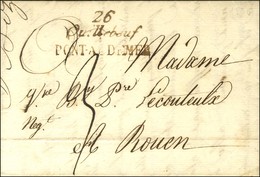 26
Quillebeuf
PONT-AUDEMER
Madame
Vve Pre Lecouteulx
Negt
A Rouen